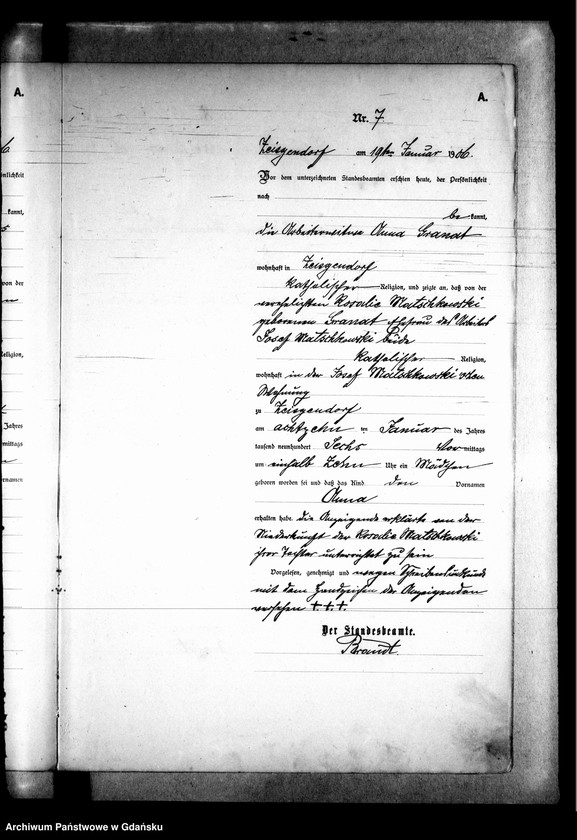 A.
A.
Nr. 7.
Zeisgendorf am 19ten Januar 1906.
Vor dem unterzeichneten Standesbeamten erschien heute, der Persönlichkeit
nach
be kannt,
die Arbeiterwitwe Anna Grandt
wohnhaft in Zeisgendorf
katholischer Religion, und zeigte an, daß von der
verehelichten Rosalie Matschkowski
geborenen Grandt Ehefrau des Arbeiters
Josef Matschkowski beide
katholischer Religion,
wohnhaft in der Josef Matschkowski'schen
Wohnung
zu Zeisgendorf
am achtzehn ten Januar des Jahres
tausend neunhundert Sechs Vor mittags
um einhalb Zehn Uhr ein Mädchen
geboren worden sei und daß das Kind den Vornamen
Anna
erhalten habe. die Anzeigende erklärte von der
Niederkunft der Rosalie Matschkowski
ihrer Tochter unterrichtet zu sein
Vorgelesen, genehmigt und wegen Schreibensunkunde
mit dem Handzeichen der Anzeigenden
versehen + + +
Der Standesbeamte.
Brandt.
kannt,
von der
Religion,
Jahres
mittags
Archiwum Państwowe w Gdańsku